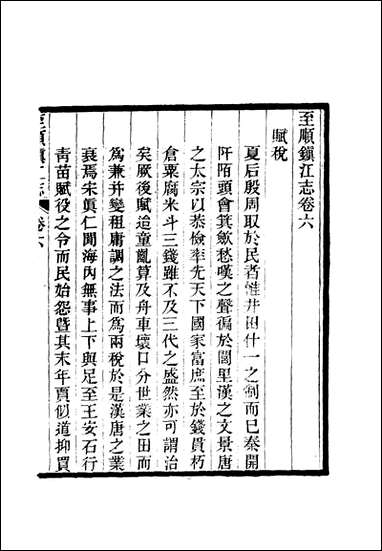 至順鎮江志卷六
賦稅
夏后殷周取於民者惟井田什一之制而已秦開
阡陌頭會箕斂愁嘆之聲徧於閭里漢之文景唐
之太宗以恭儉率先天下國家富庶至於錢貫朽
倉粟腐米斗三錢雖不及三代之盛然亦可謂治
矣厥後賦逮童亂算及舟車壞口分世業之田而
為兼并變租庸調之法而為兩稅於是漢唐之業
衰焉宋眞仁聞海內無事上下與足至王安石行
青苗賦役之令而民始怨曁其末年賈似道抑買
至順鎮江志 卷六